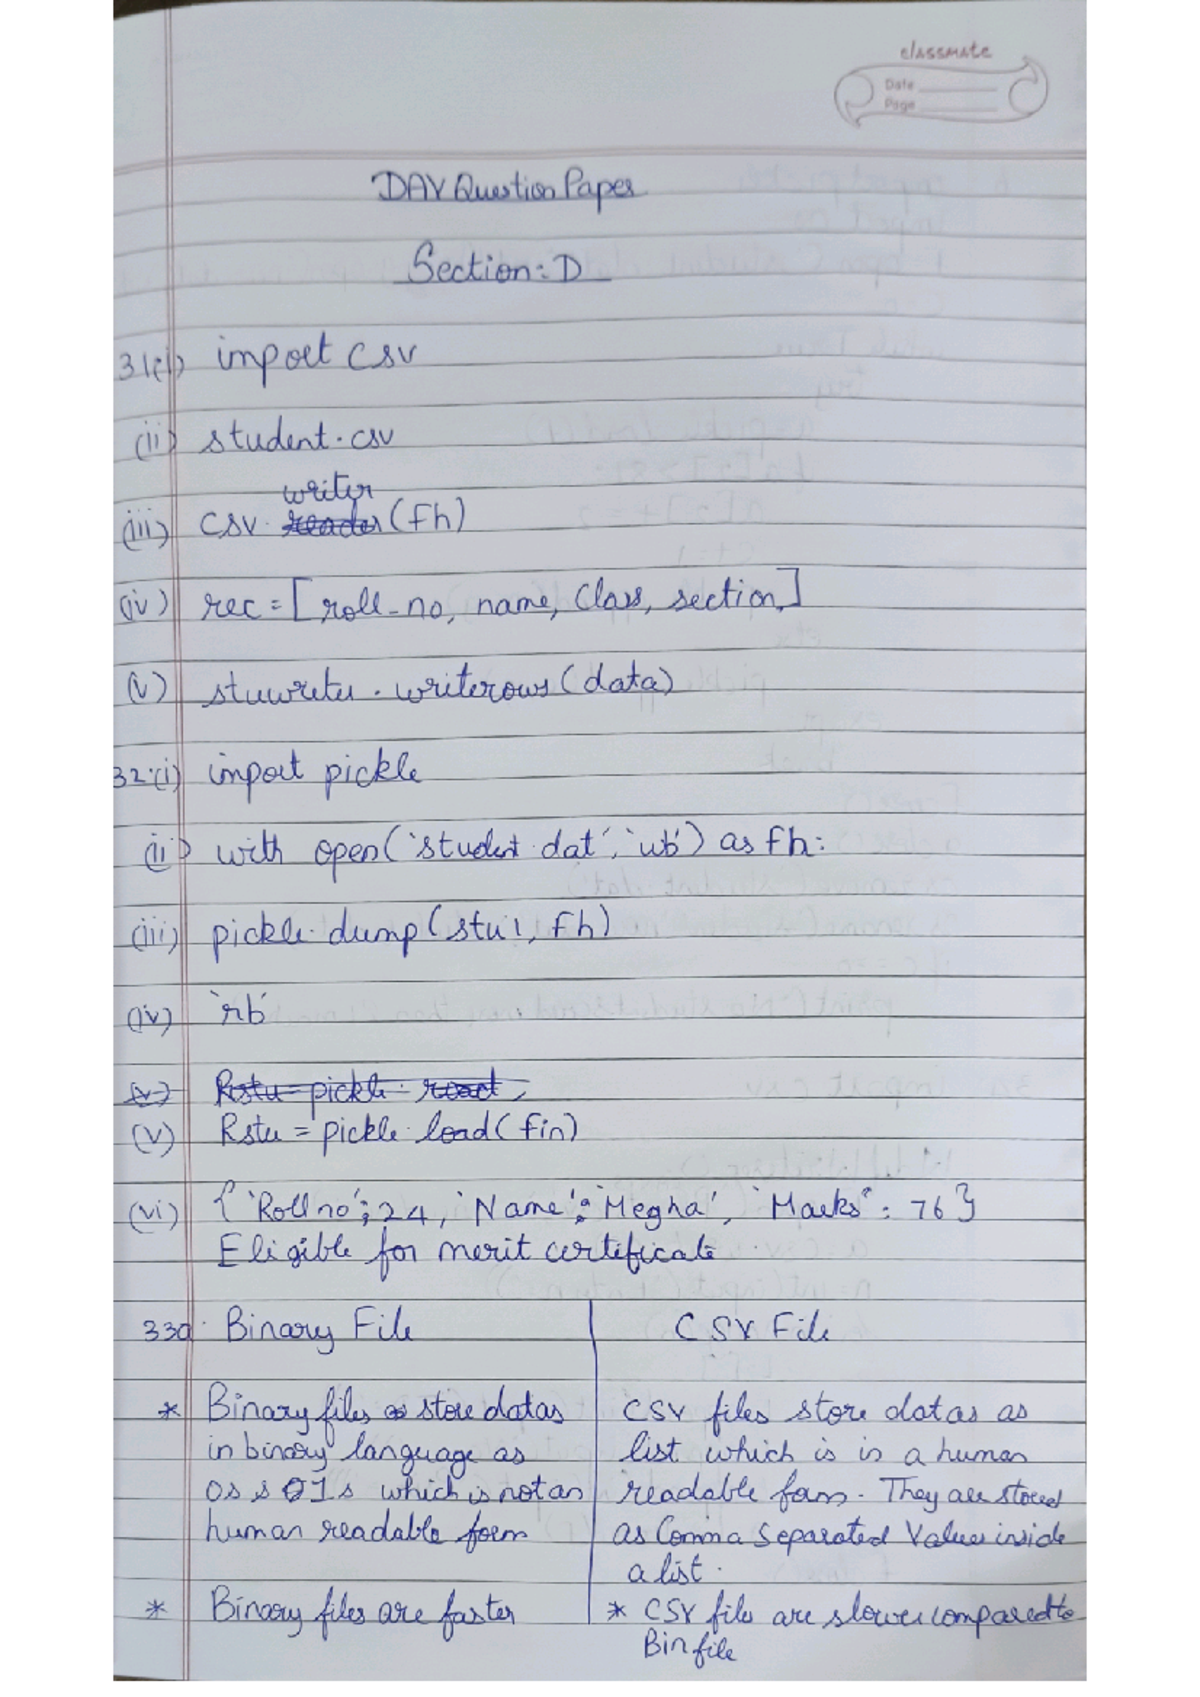 classmate
Date
Page
DAV Question Paper
Section: D
31(i) import csv
(ii) student.csv
writer
(iii) csv.reader(fh)
(iv) rec = [roll_no, name, Class, section]
(v) stuwriter.writerows(data)
32.(i) import pickle
(ii) with open('student.dat', 'wb') as fh:
(iii) pickle.dump(stu1, fh)
(iv) 'rb'
(v) Rstu = pickle.read
(v) Rstu = pickle.load(fin)
(vi) {'Roll no': 24, 'Name': 'Megha', 'Marks': 76}
Eligible for merit certificate.
33a. Binary File CSV File
* Binary files store datas CSV files store datas as
in binary language as list which is in a human
0s & 1s which is not an readable form. They are stored
human readable form as Comma Separated Values inside
a list.
* Binary files are faster * CSV file are slower compared to
Bin file